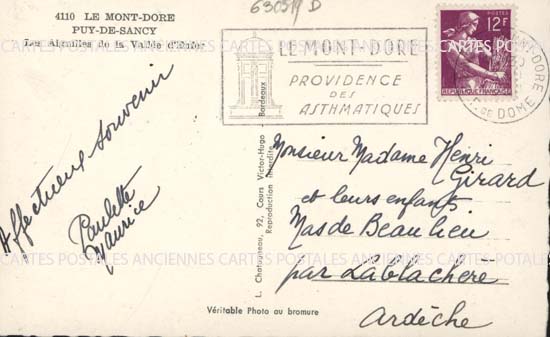 630519 D
4110 LE MONT-DORE
PUY-DE-SANCY
Les Aiguilles de la Vallée d'Enfer
LE MONT-DORE
PROVIDENCE
DES
ASTHMATIQUES
POSTES
12F
REPUBLIQUE FRANÇAISE
DORE
DE DOME
Affectueux souvenir
Paulette
Maurice
L. Chatagneau, 92, Cours Victor-Hugo - Bordeaux
Reproduction interdite
Monsieur Madame Henri
Girard
et leurs enfants
Mas de Beaulieu
par Lablachère
Ardèche
CARTES POSTALES ANCIENNES CARTES POSTALES ANCIENNES CARTES POSTALES
Véritable Photo au bromure